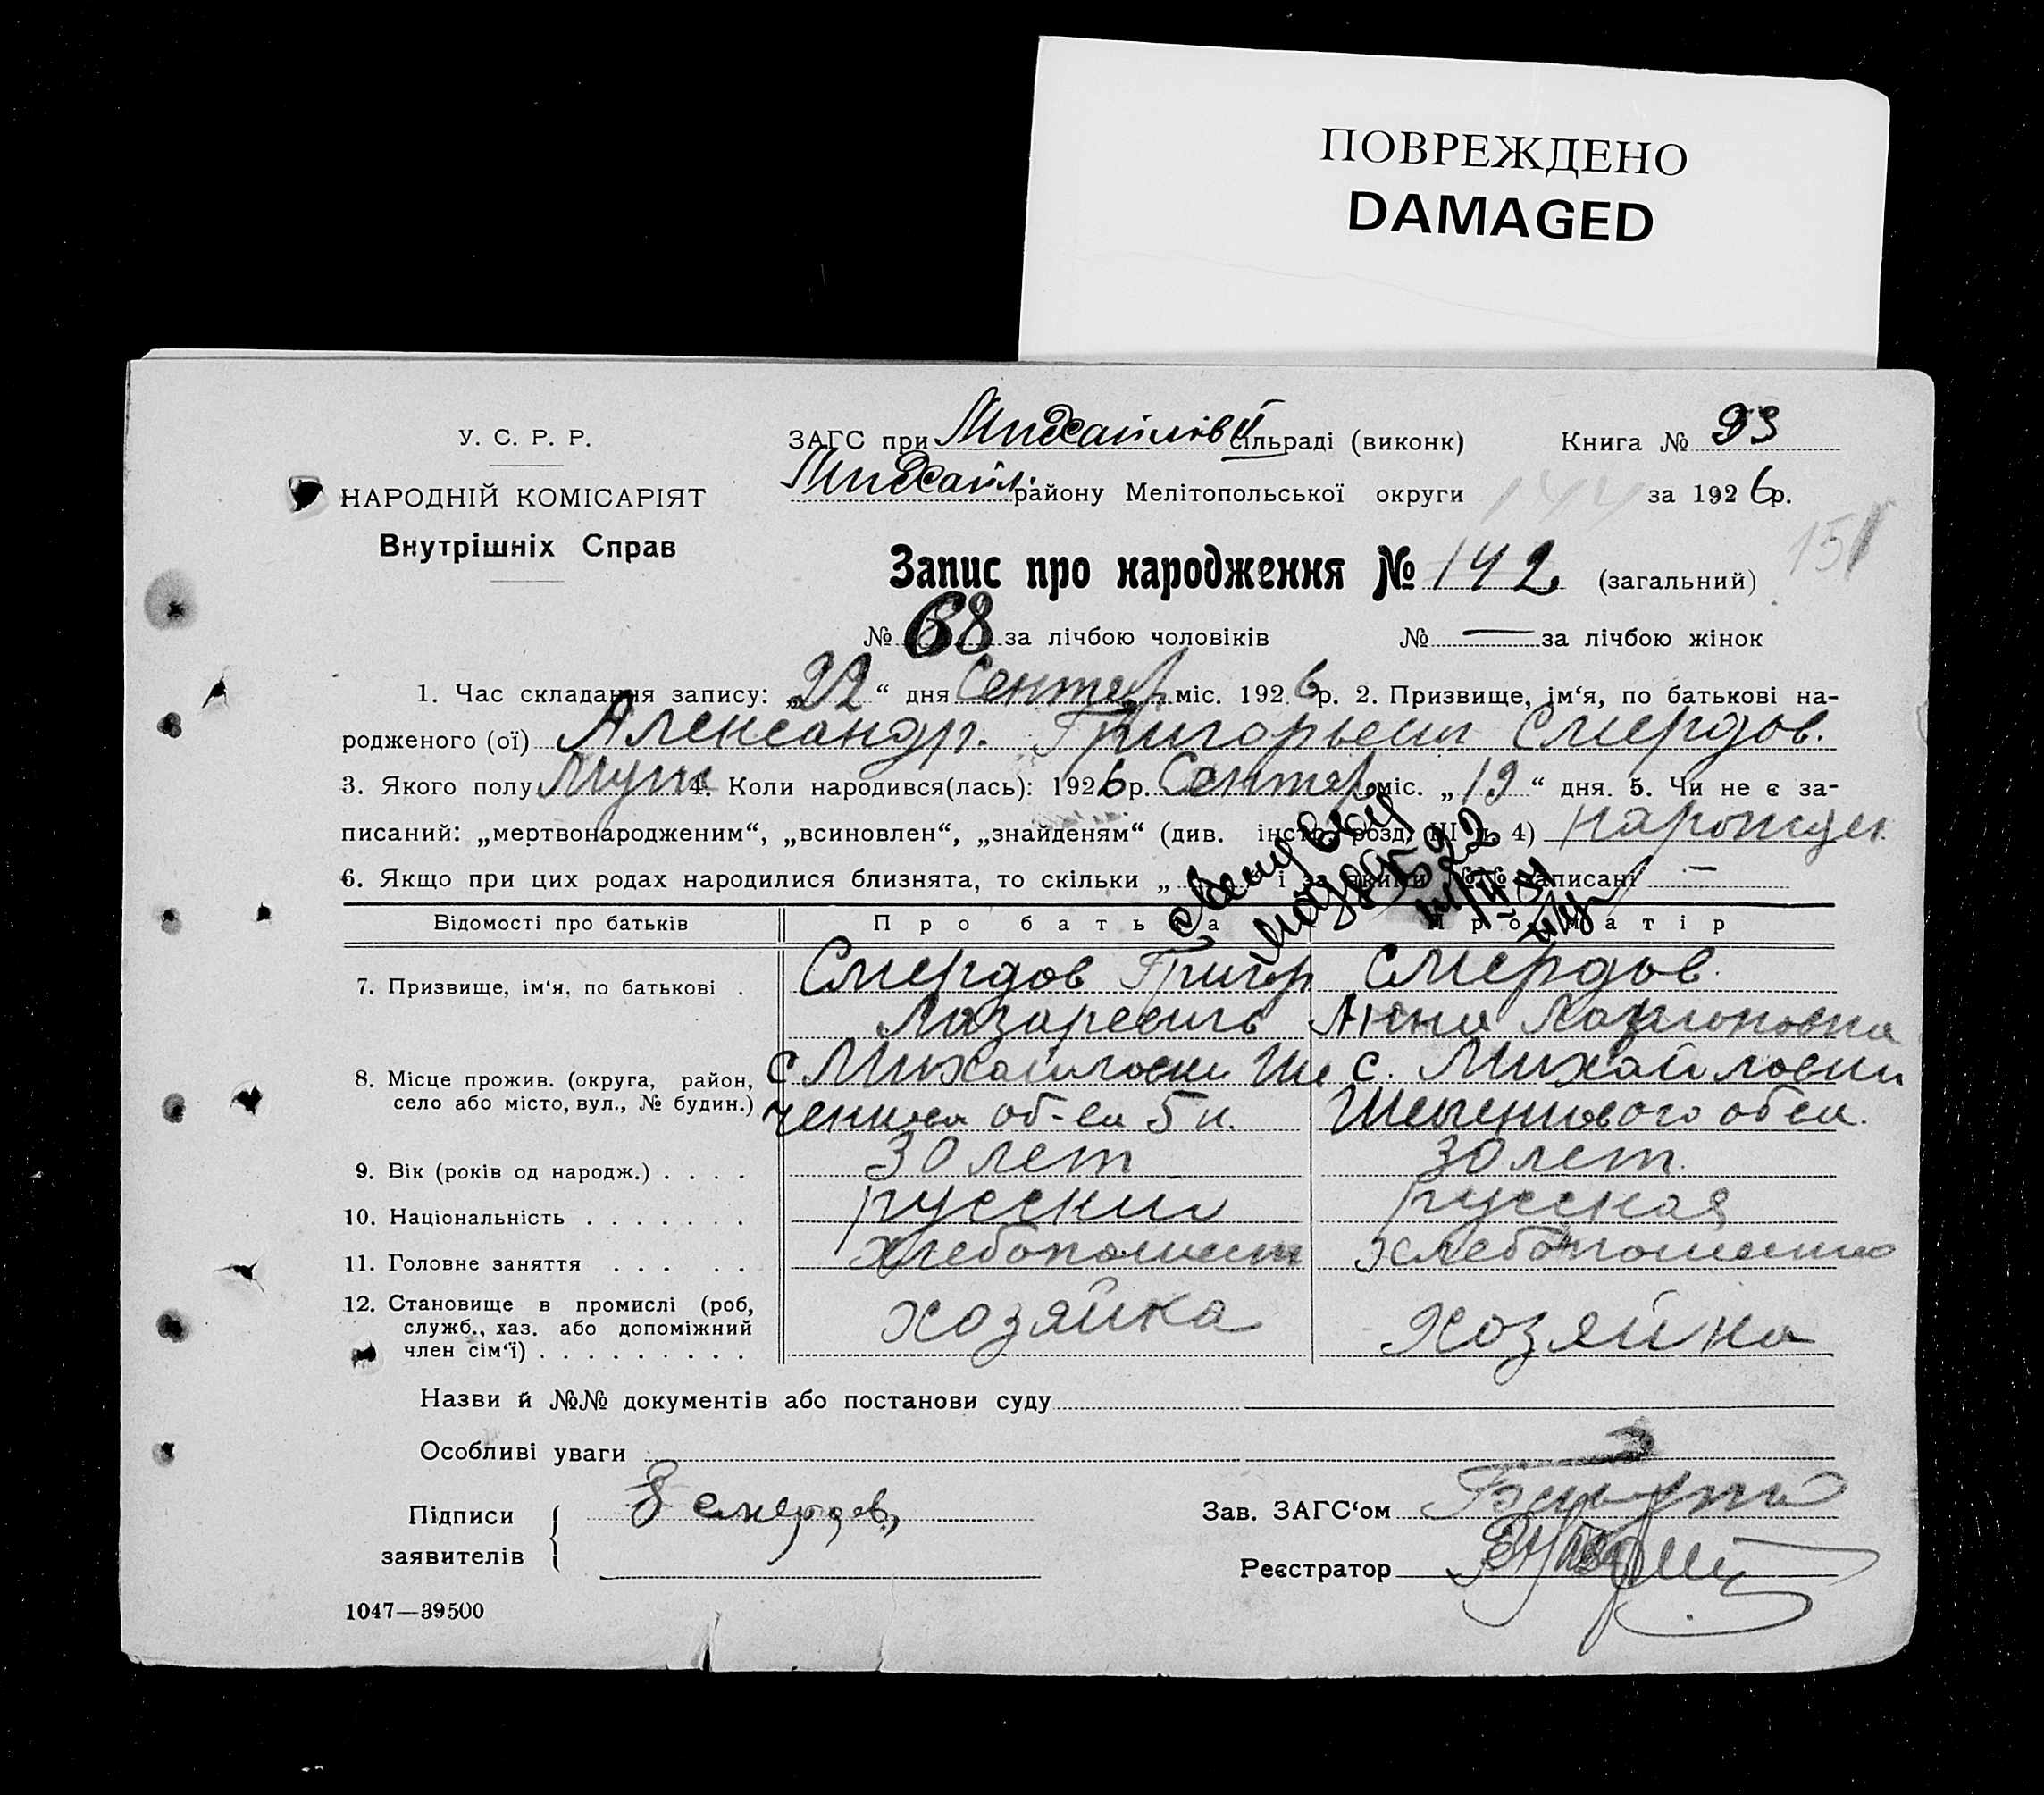 ПОВРЕЖДЕНО
DAMAGED
У. С. Р. Р.
НАРОДНІЙ КОМІСАРІЯТ
Внутрішніх Справ
ЗАГС при Михайлівй сільраді (виконк) Книга № 93
Михайл. району Мелітопольської округи 144 за 1926 р.
151
Запис про народження № 142 (загальний)
№ 68 за лічбою чоловіків № — за лічбою жінок
1. Час складання запису: „22“ дня Сентяб. міс. 1926 р. 2. Призвище, ім‘я, по батькові на-
родженого (ої) Александр. Григорьевич Смердов.
3. Якого полу Муж 4. Коли народився(лась): 1926 р. Сентяб. міс. „19“ дня. 5. Чи не є за-
писаний: „мертвонародженим“, „всиновлен“, „знайденям“ (див. інстр. розд. III п. 4) нарожден
6. Якщо при цих родах народилися близнята, то скільки „ “ і за якими №№ записані —
Відомості про батьків Про батька Про матір
7. Призвище, ім‘я, по батькові . Смердов Григор Смердов.
Лазаревич Анна
8. Місце прожив. (округа, район, с Михайловки Ше с. Михайловки
село або місто, вул., № будин.) ченков об-ва 5 н. Шевченкового об-ва.
9. Вік (років од народж.) . . . . 30 лет 30 лет.
10. Національність . . . . . . . русский русская
11. Головне заняття . . . . . хлебопашест хлебопашество
12. Становище в промислі (роб, хозяйка хозяйка
служб., хаз. або допоміжний
член сім‘ї) . . . . . . . . .
Назви й №№ документів або постанови суду
Особливі уваги
Підписи Смердов,
заявителів
Зав. ЗАГС‘ом
Реєстратор
1047—39500